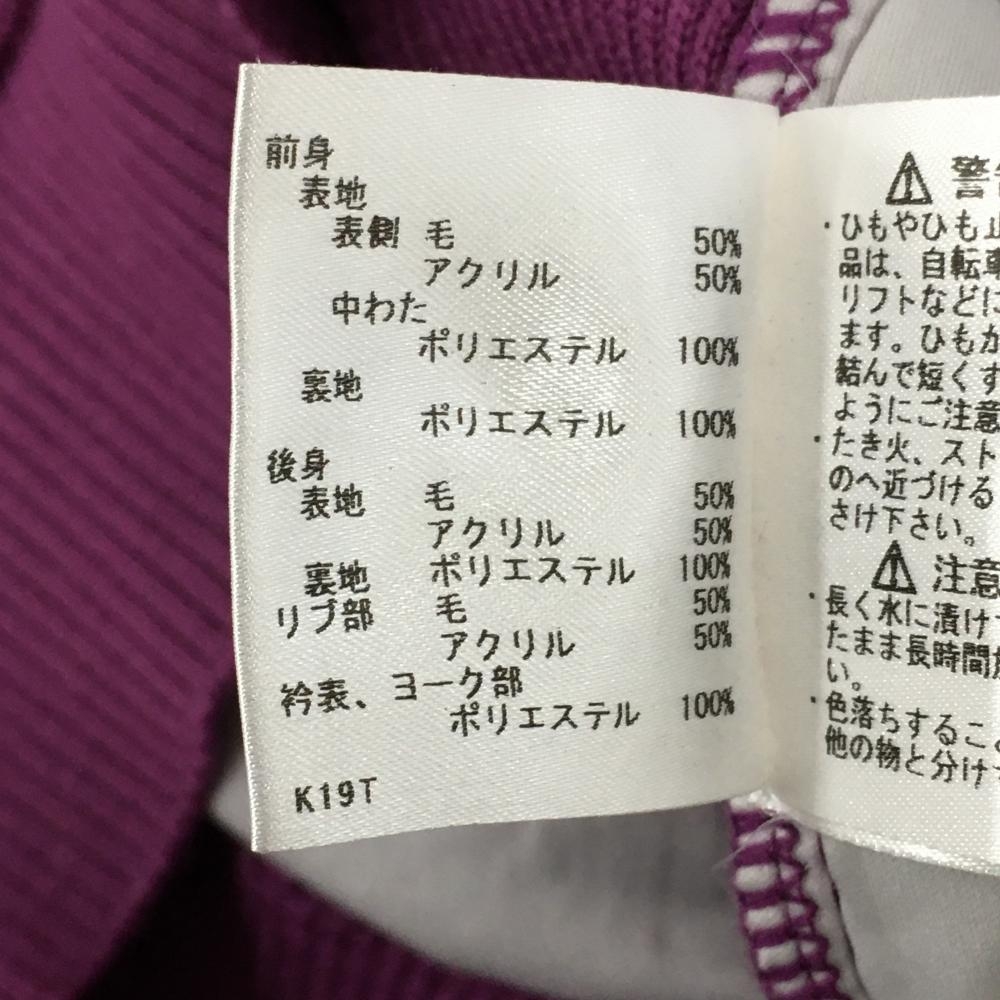 前身
表地
表側 毛 50%
アクリル 50%
中わた
ポリエステル 100%
裏地
ポリエステル 100%
後身
表地 毛 50%
アクリル 50%
裏地 ポリエステル 100%
リブ部 毛 50%
アクリル 50%
衿表、ヨーク部
ポリエステル 100%
K19T
警
・ひもやひも止
品は、自転車
リフトなどに
ます。ひもが
結んで短くす
ようにご注意
・たき火、スト
のへ近づける
さけ下さい。
注意
・長く水に漬け
たまま長時間
い。
・色落ちするこ
他の物と分け